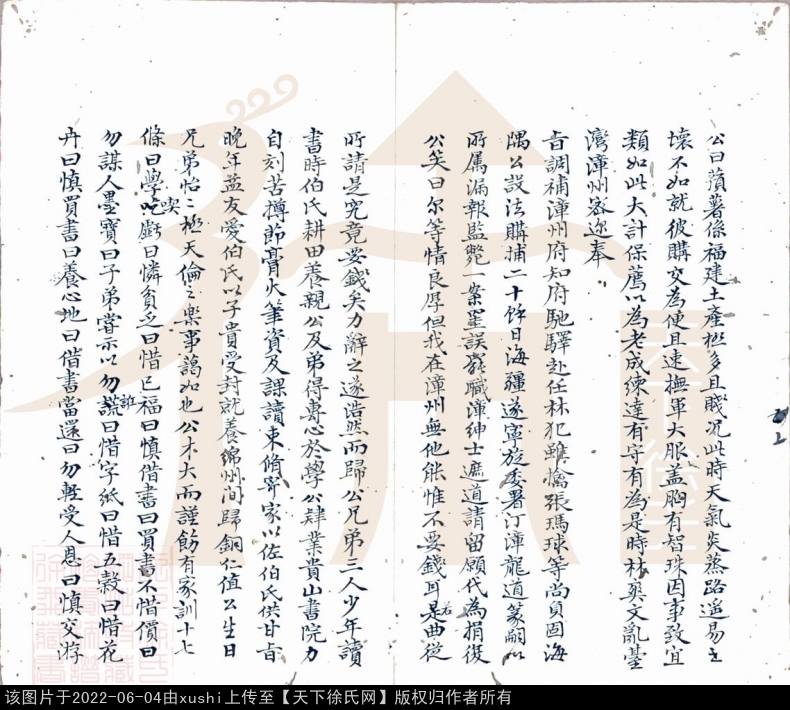 公曰蘋薯係福建土產極多且賤况此時天氣炎蒸路遥易之
壞不如就彼購交為便且速撫軍大服盖胸有智珠因事致宜
類如此大計保薦以為老成練達有守有為是時林爽文亂臺
灣漳州密迩奉
旨調補漳州府知府馳驛赴任林犯雖擒張瑪球等尚負固海
隅公設法購捕二十餘日海疆遂寧旋委署汀漳龍道篆嗣以
所属漏報監斃一案罣誤鐫職漳紳士遮道請留願代為捐復
公笑曰尔等情良厚但我在漳州無他能惟不要錢耳若是曲從
所請是究竟要錢矣力辭之遂浩然而歸公兄弟三人少年讀
書時伯氏耕田養親公及弟得專心於學公肄業貴山書院力
自刻苦撙節膏火筆資及課讀束脩寄家以佐伯氏供甘旨
晚年益友愛伯氏以子貴受封就養綿州間歸銅仁值公生日
兄弟怡二極天倫之樂事藹如也公木大而謹飭有家訓十七
條曰學吃虧曰憐貧乏曰惜已福曰慎借書曰買書不惜價曰
勿謀人墨寶曰子弟嘗示以勿誑曰惜字紙曰惜五穀曰惜花
卉曰慎買書曰養心地曰借書當還曰勿輕受人恩曰慎交游
该图片于2022-06-04由xushi上传至【天下徐氏网】版权归作者所有